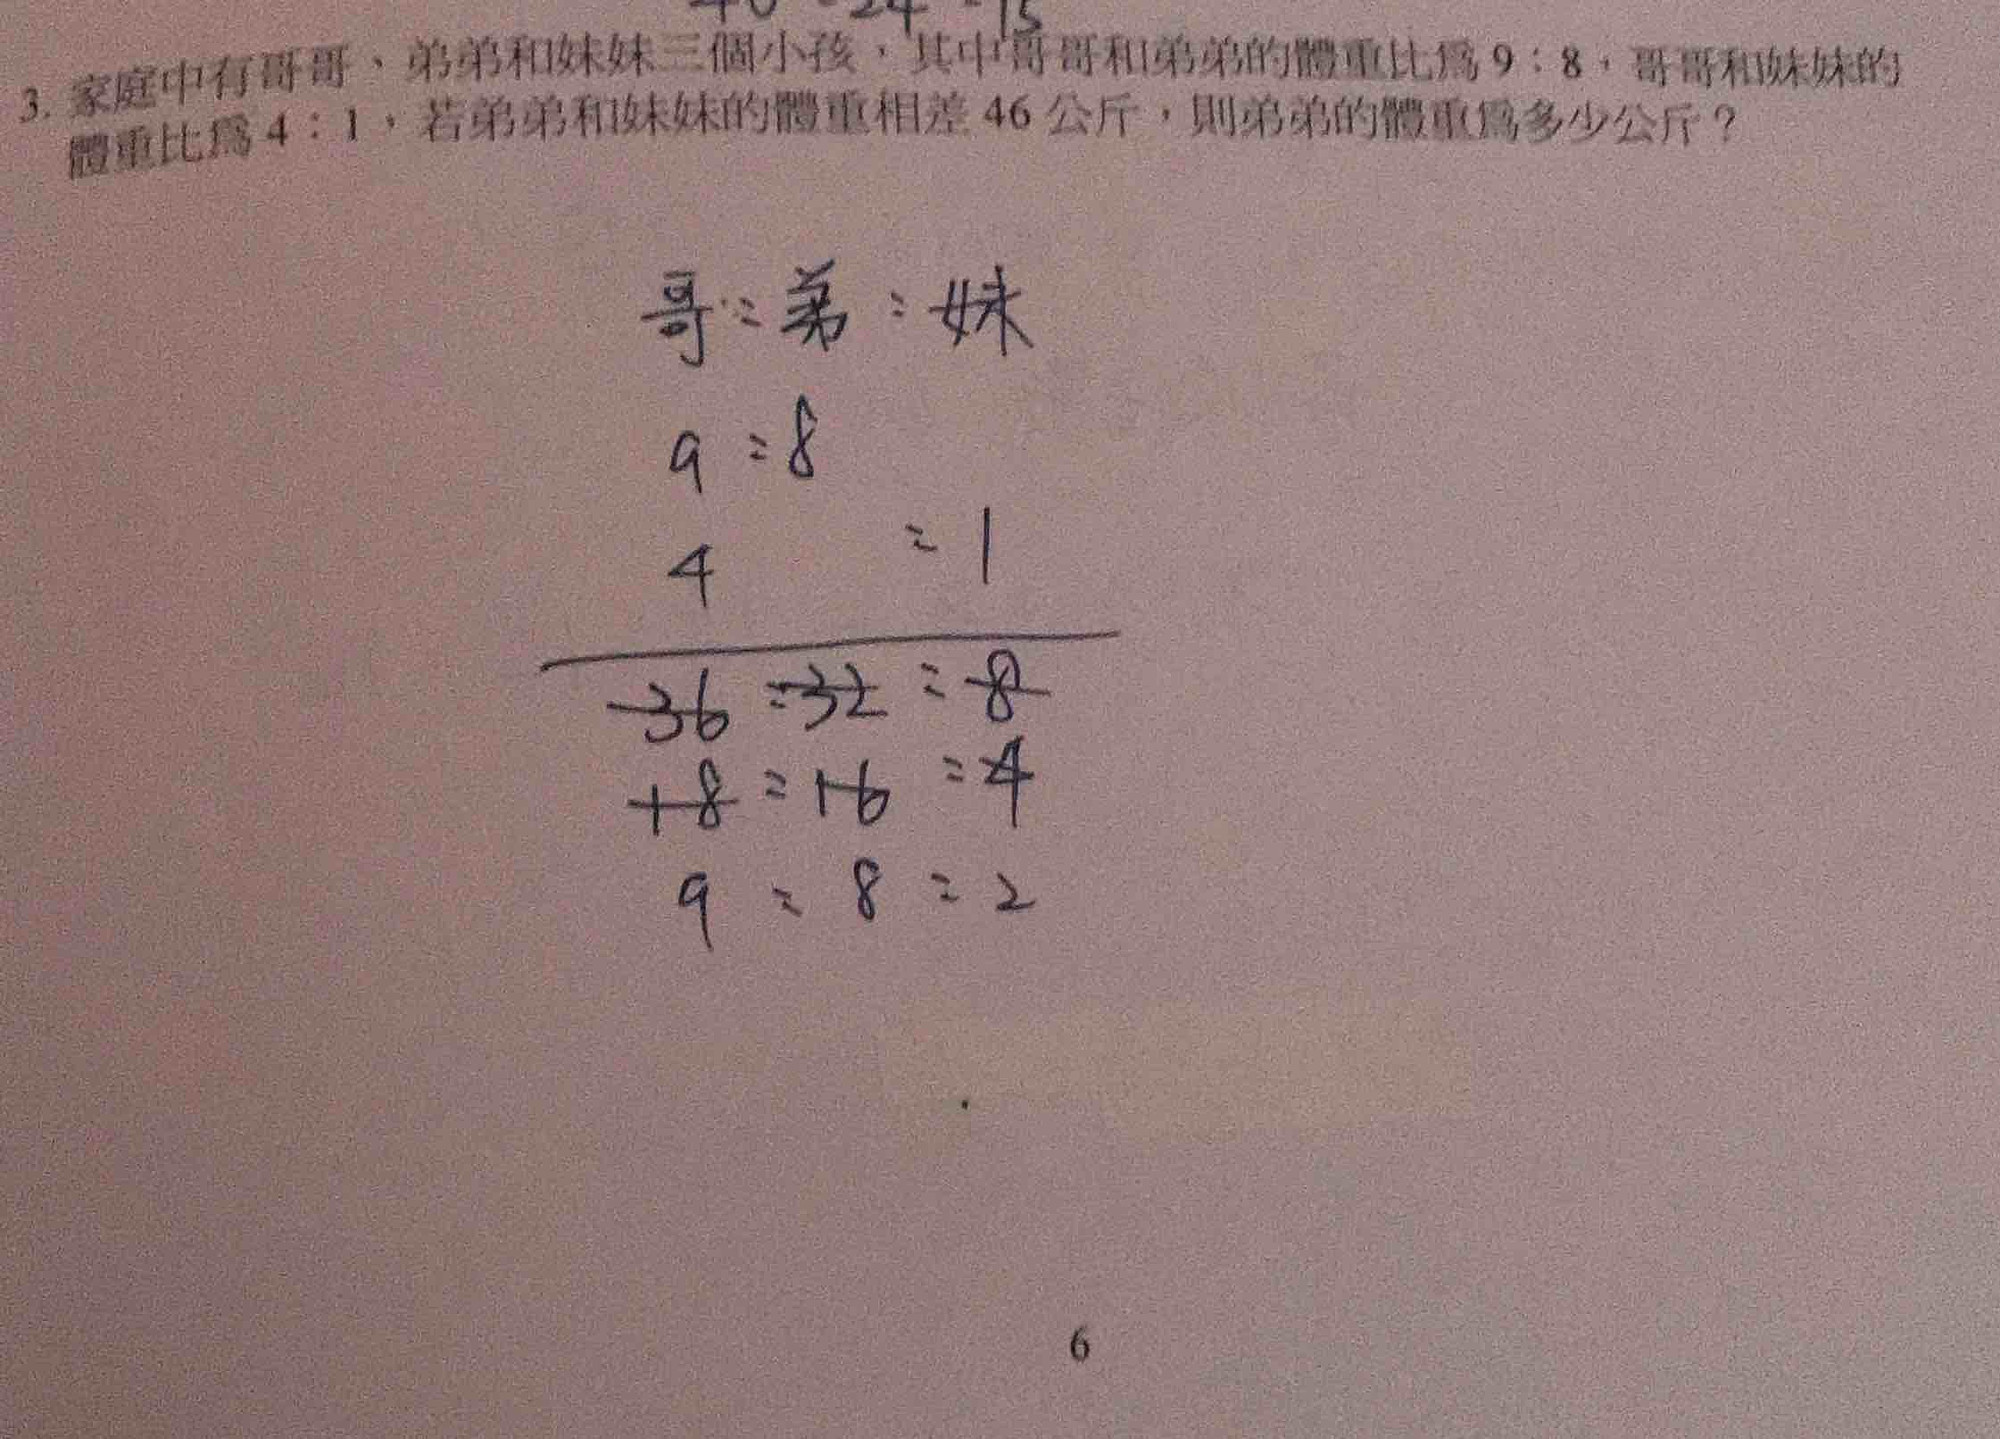 40 : 24 : 15
3. 家庭中有哥哥、弟弟和妹妹三個小孩，其中哥哥和弟弟的體重比為 9：8，哥哥和妹妹的
體重比為 4：1，若弟弟和妹妹的體重相差 46 公斤，則弟弟的體重為多少公斤？
哥 : 弟 : 妹
9 : 8
4 : 1
36 : 32 : 8
18 : 16 : 4
9 : 8 : 2
6